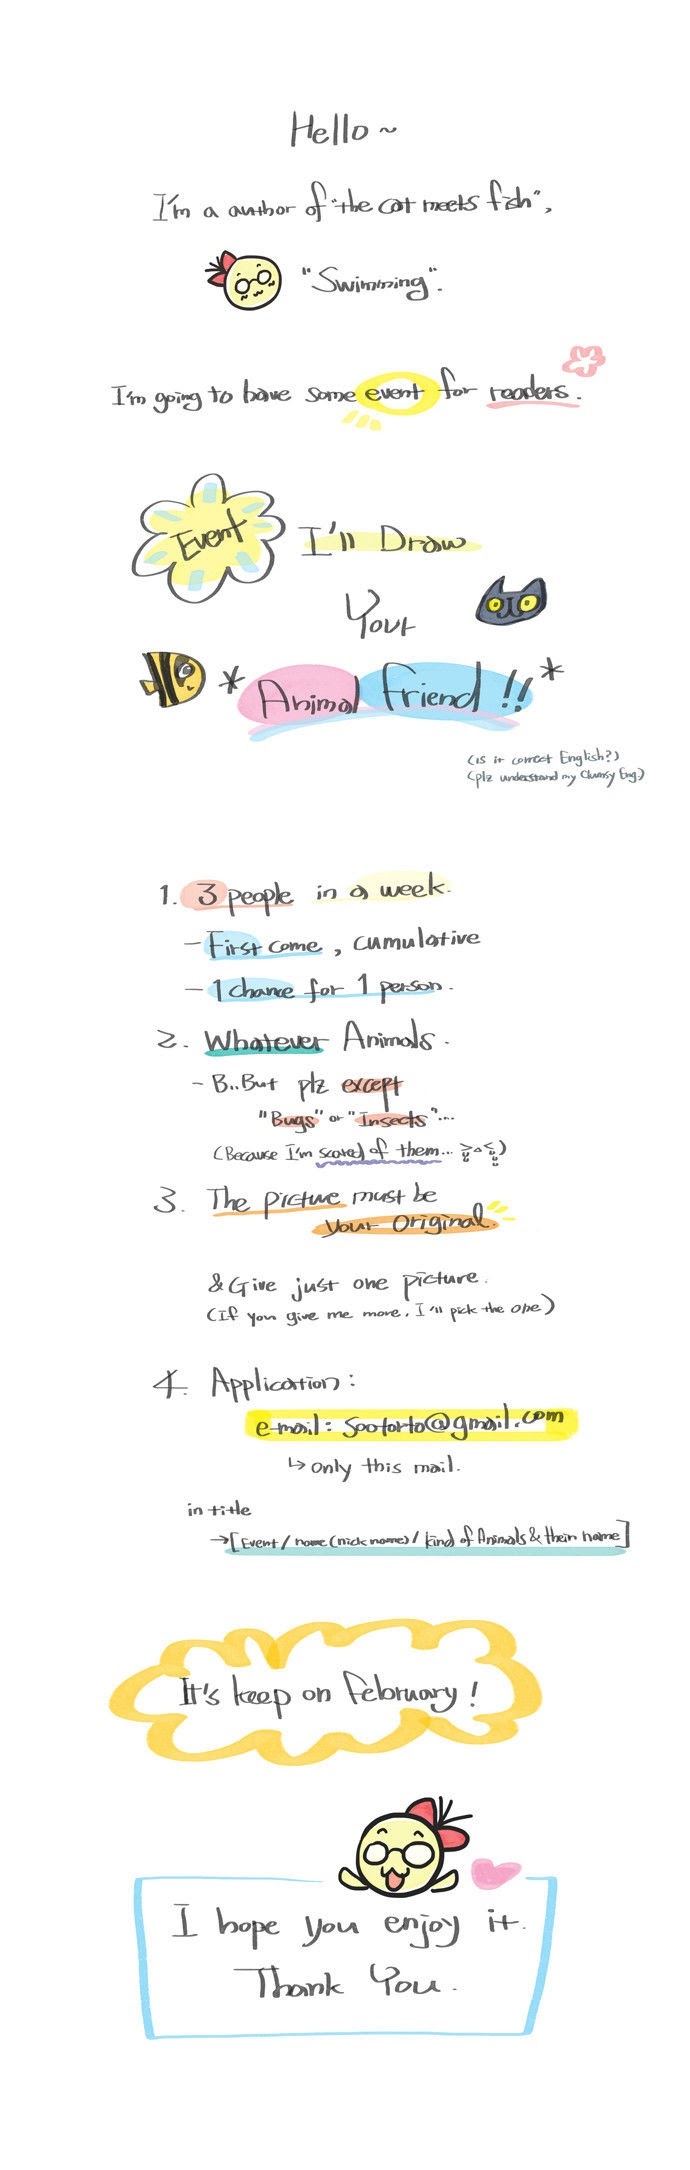 Hello ~
I'm a author of "the cat meets fish",
"Swimming".
I'm going to have some event for readers.
Event
I'll Draw
Your
* Animal friend !! *
(Is it correct English?)
(plz understand my Clumsy Eng.)
1. 3 people in a week.
- First come, cumulative
- 1 chance for 1 person.
2. Whatever Animals.
- B..But plz except
"Bugs" or "Insects"...
(Because I'm scared of them...
3. The picture must be
your original.
& Give just one picture.
(If you give me more, I'll pick the one)
4. Application :
e-mail : sooforto@gmail.com
↳ only this mail.
in title
→[Event / name (nick name) / kind of Animals & their name]
It's keep on february !
I hope you enjoy it.
Thank You.